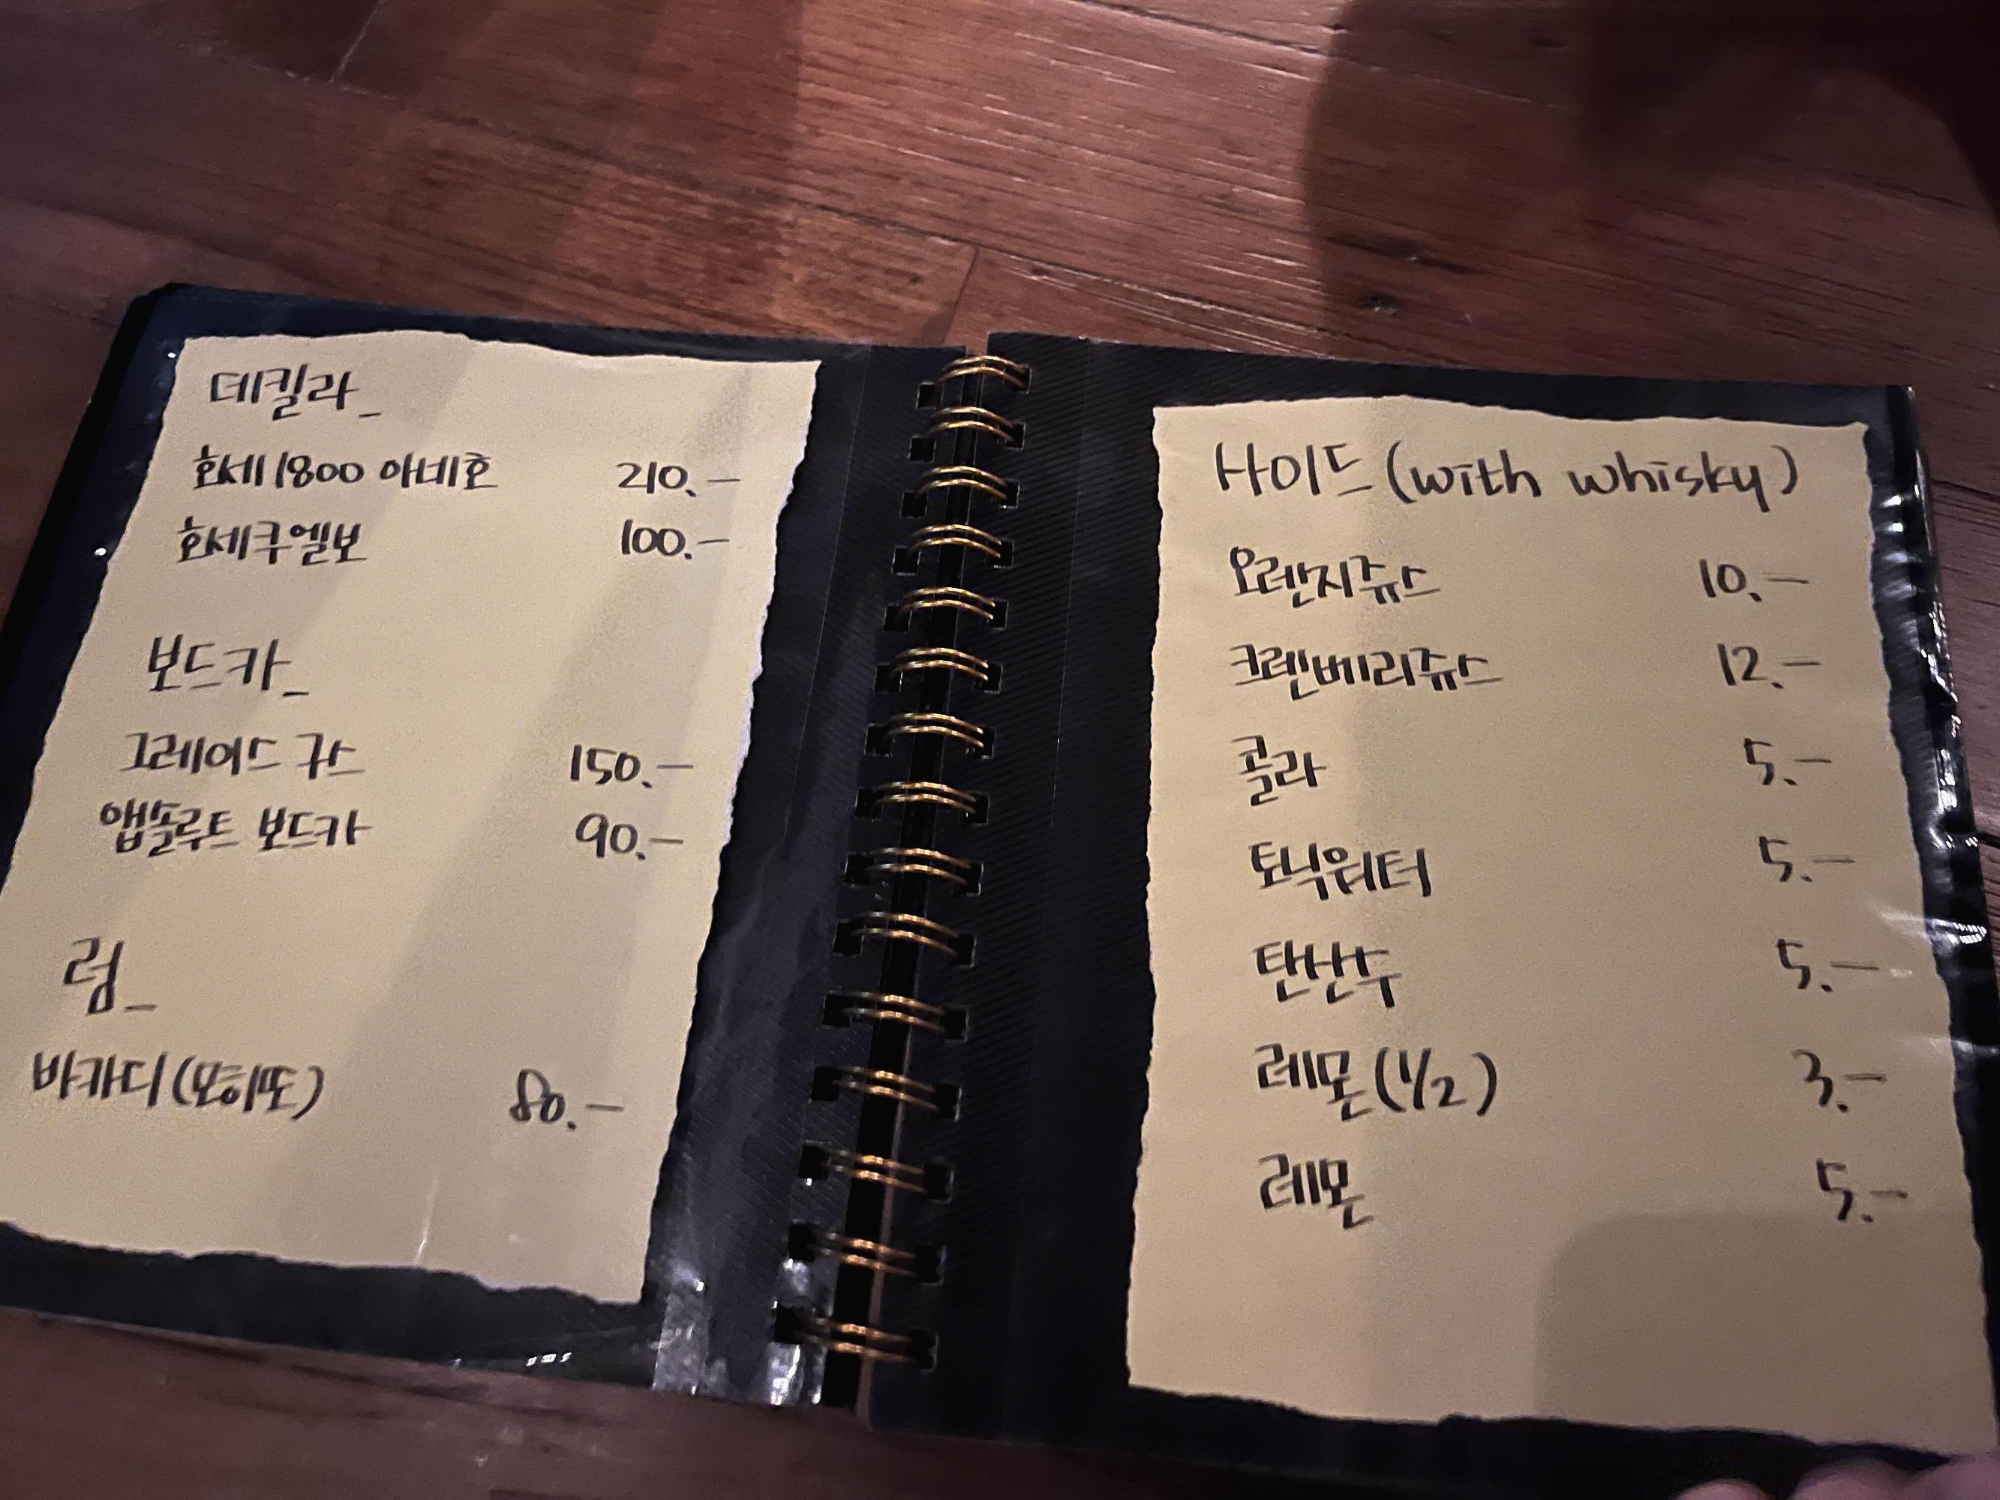 데킬라_
호세 1800 아네호 210.-
호세쿠엘보 100.-
보드카_
그레이드 구스 150.-
앱솔루트 보드카 90.-
럼_
바카디(모히또) 80.-
사이드(with whisky)
오렌지쥬스 10.-
크렌베리쥬스 12.-
콜라 5.-
토닉워터 5.-
탄산수 5.-
레몬(1/2) 3.-
레몬 5.-